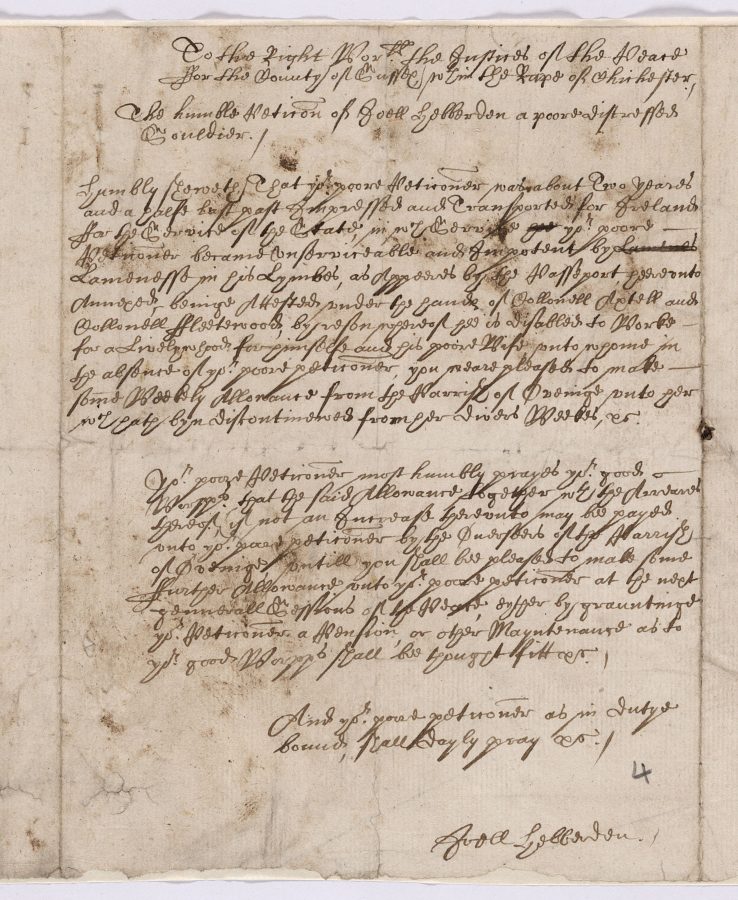 To the Right Worpll the Justices of the Peace
ffor the County of Sussex, wthin the Rape of Chichester /
The humble Peticon of Joell Hebberden a poore distressed
Souldier. /
Humbly sheweth, That yor poore Peticoner was about Two yeares
and a halfe last past Impressed and Transported for Ireland
ffor the Service of the State, in wch Service yor poore
Peticoner became vnserviceable and Impotent by Lamenes
Lamenesse in his Lymbes, as Appeares by the Passeport herevnto
Annexed beinge Attested vnder the hands of Collonell Axtell and
Collonell ffleetewood, by reson whereof hee is disabled to Worke
for a Livelywhood for himselfe and his poore Wife vnto whome in
the absence of yor poore peticoner you weare pleased to make
some Weekly Allowance from the Parrish of Ovenige vnto her
wch hath byn discontinewed from her divers Weekes, &c.
Yor poore Peticoner most humbly prayes yor good
Worpps that the said Allowance together wth the Arreares
thereof, if not an Increase therevnto may bee payed
vnto yor poore peticoner by the Overseers of the Parrish
of Ovenige vntill you shall bee pleased to make some
ffurther Allowance vnto yor poore peticoner at the next
gennerall Sessions of the Peace, eyther by grauntinge
yor Peticoner a Pension or other Mayntenance as to
yor good Worpps shall be thought fitt &c. /
And yor poore peticoner as in dutye
bound, shall dayly pray &c. /
4
Joell Hebberden. /